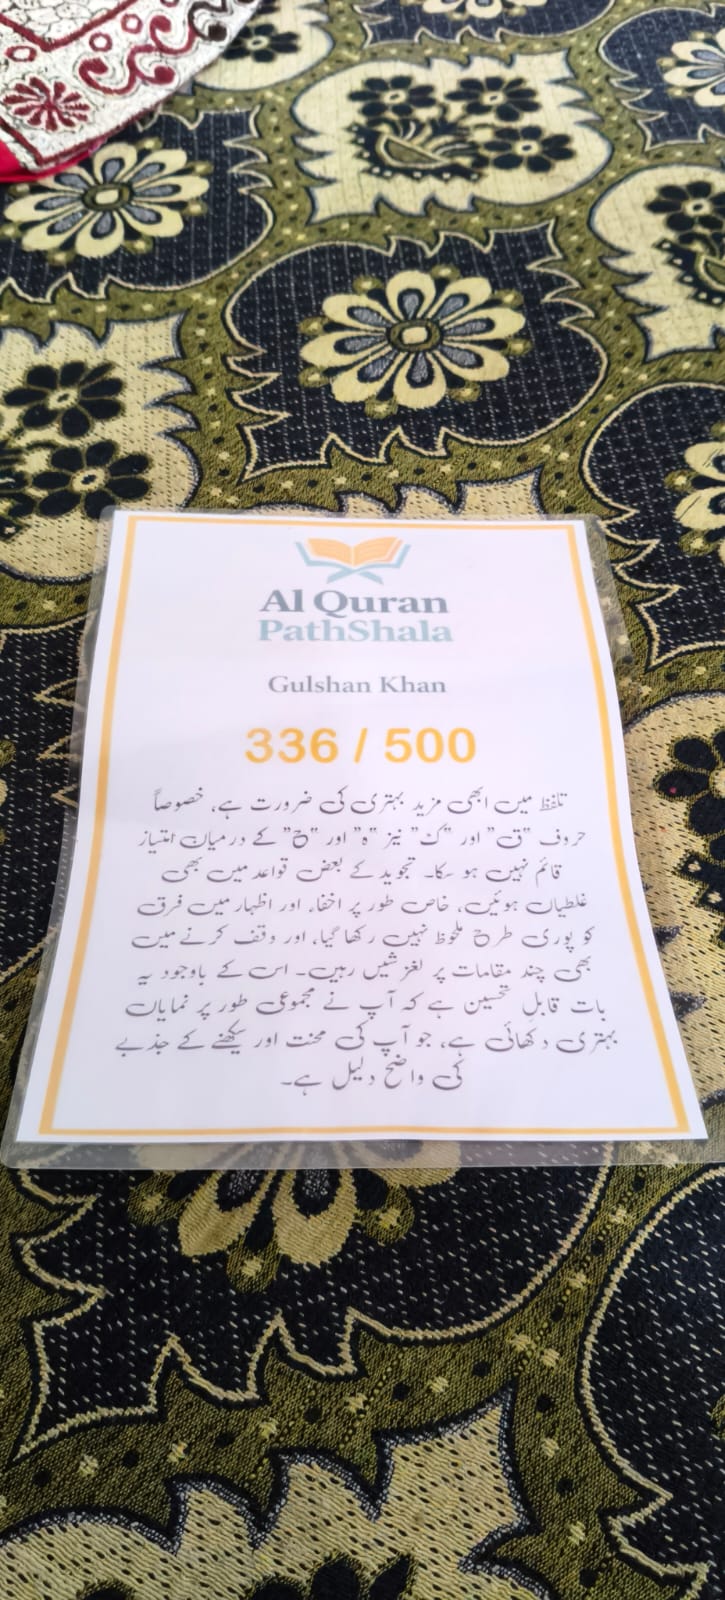 Al Quran
PathShala
Gulshan Khan
336 / 500
تلفظ میں ابھی مزید بہتری کی ضرورت ہے، خصوصاً
حروف "ق" اور "ک" نیز "ہ" اور "ح" کے درمیان امتیاز
قائم نہیں ہو سکا۔ تجوید کے بعض قواعد میں بھی
غلطیاں ہوئیں، خاص طور پر اخفاء اور اظہار میں فرق
کو پوری طرح ملحوظ نہیں رکھا گیا، اور وقف کرنے میں
بھی چند مقامات پر لغزشیں رہیں۔ اس کے باوجود یہ
بات قابلِ تحسین ہے کہ آپ نے مجموعی طور پر نمایاں
بہتری دکھائی ہے، جو آپ کی محنت اور سیکھنے کے جذبے
کی واضح دلیل ہے۔